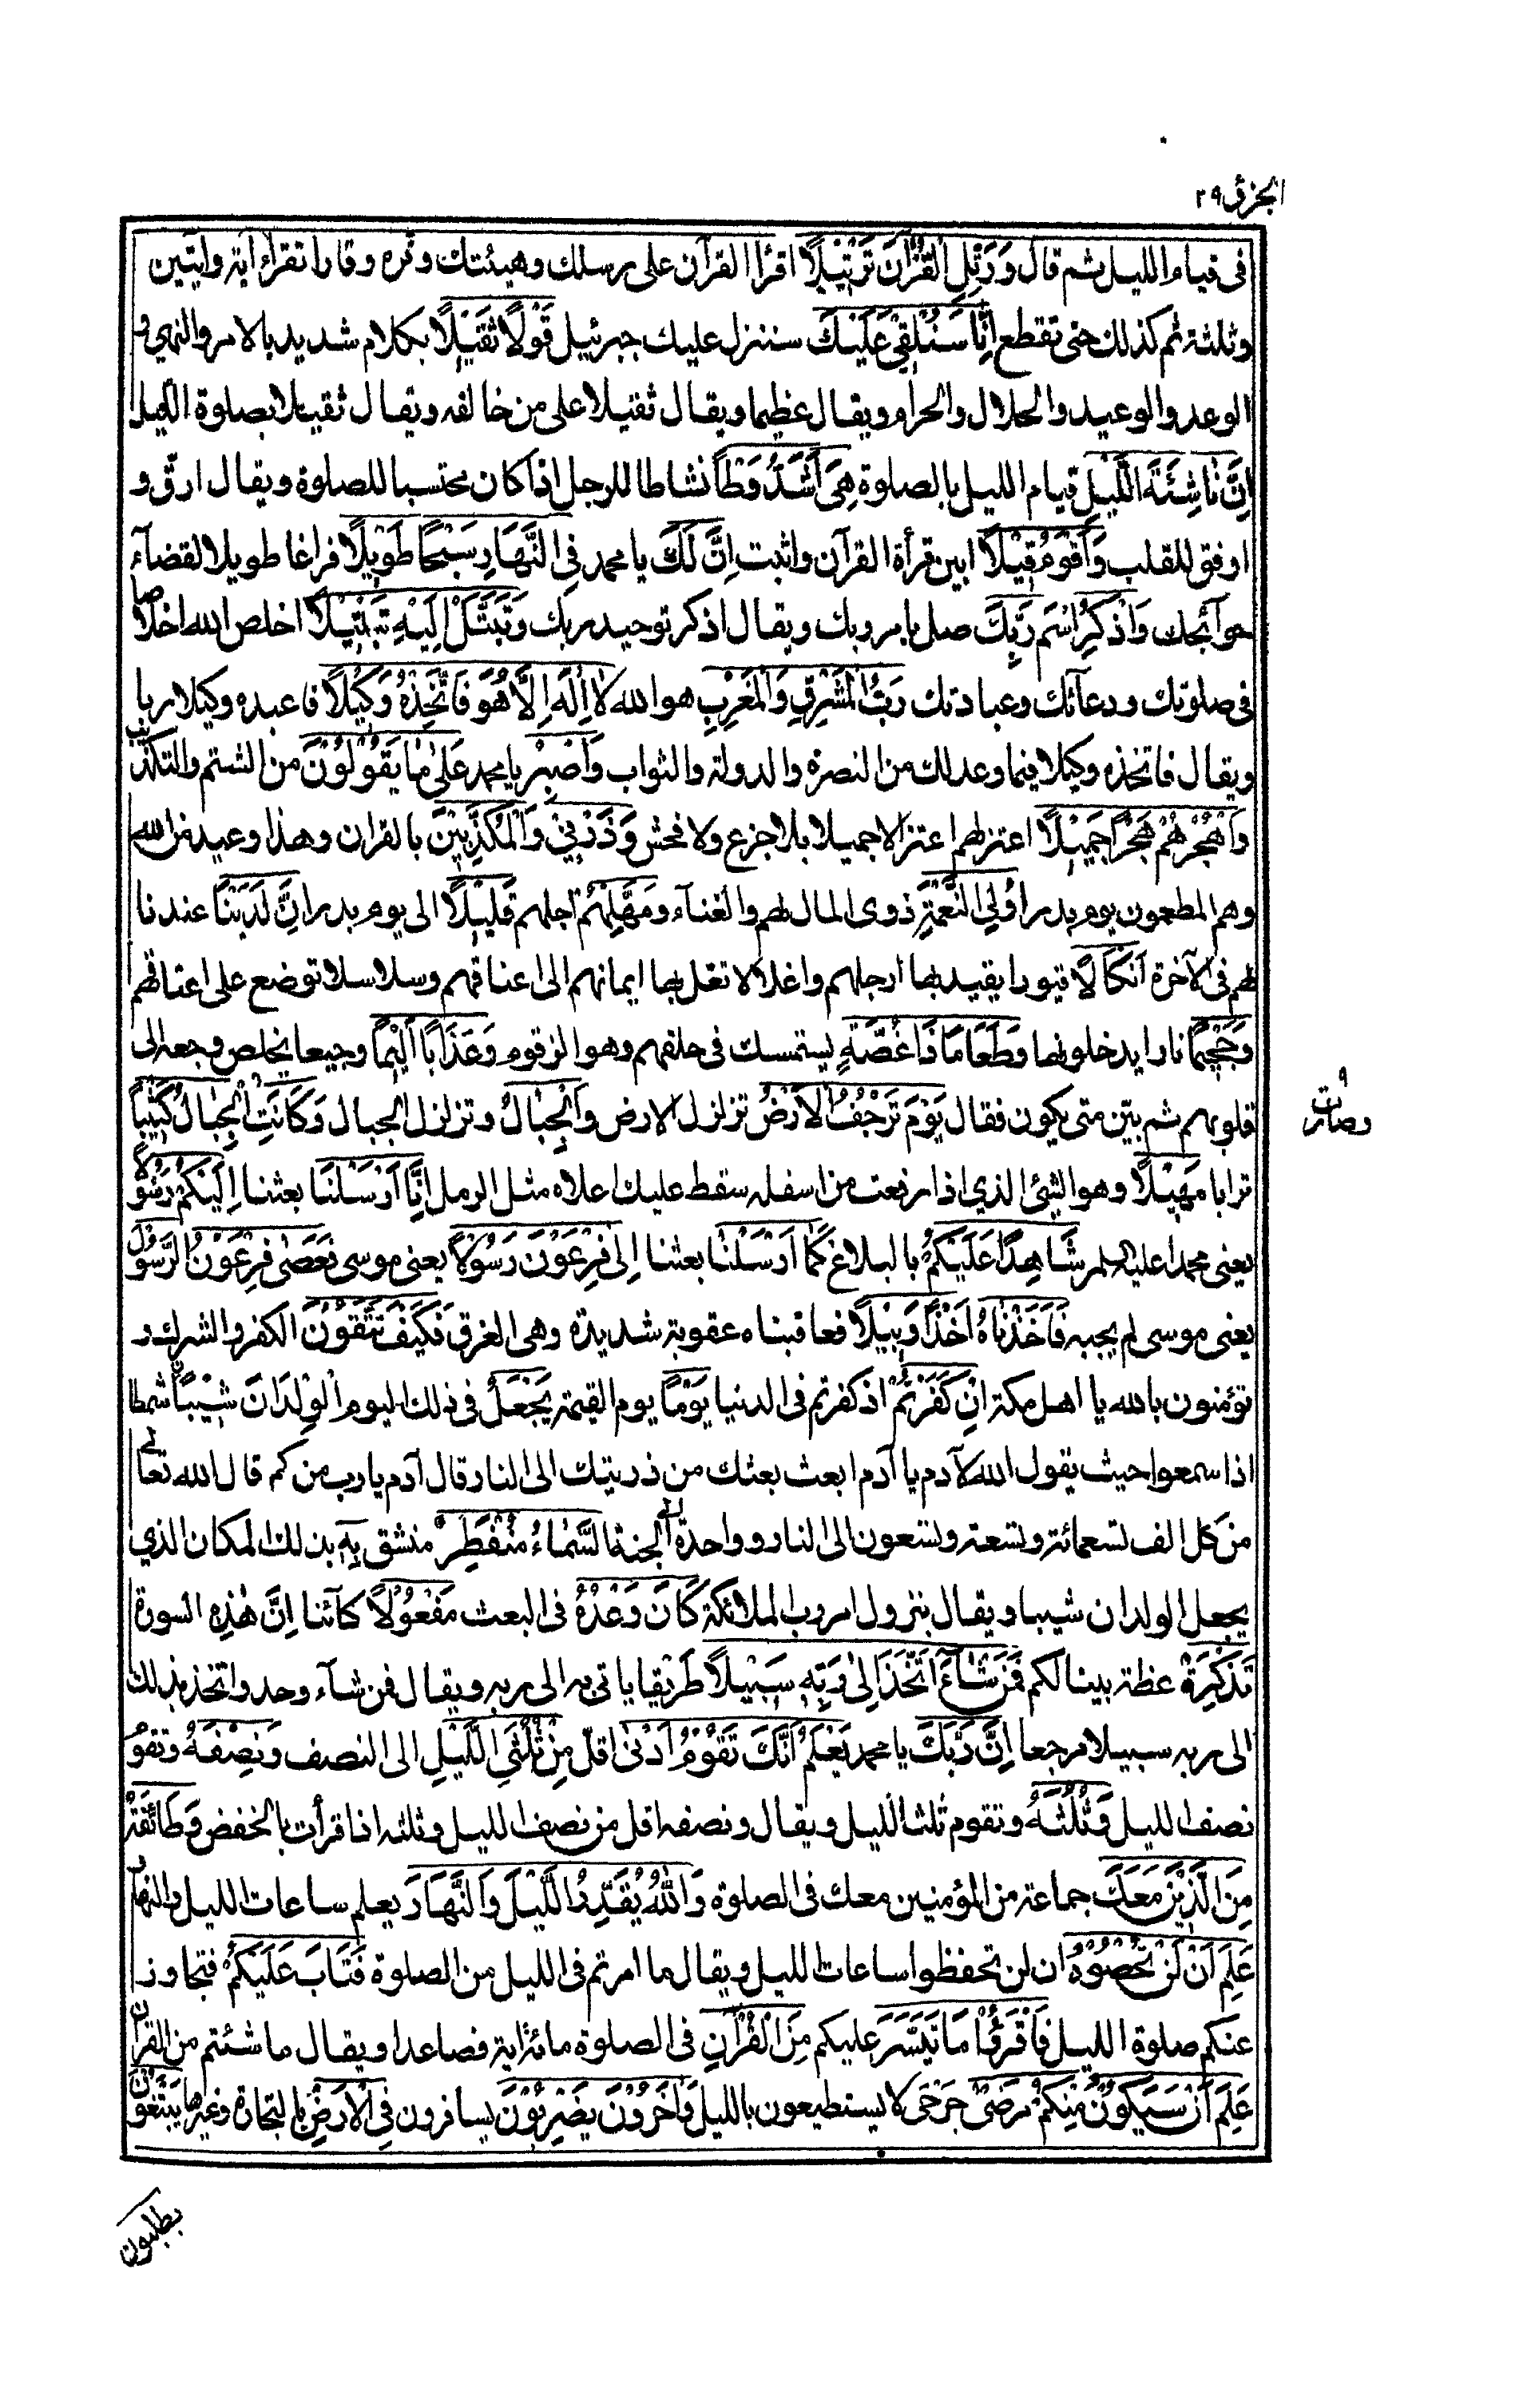 الجزؤ ٢٩
فى قيام الليل ثم قال وَرَتِّلِ الْقُرْاٰنَ تَرْتِيْلًا اقرأ القرآن على رسلك وهيئتك وقره وقارا تقراء آية وايتين
وثلثة ثم كذلك حتى تقطع اِنَّا سَنُلْقِىْ عَلَيْكَ سننزل عليك جبرئيل قَوْلًا ثَقِيْلًا بكلام شديد بالامر والنهي و
الوعد والوعيد والحلال والحرام ويقال عظيما ويقال ثقيلا على من خالفه ويقال ثقيلا بصلوة الليل
اِنَّ نَاشِئَةَ الَّيْلِ قيام الليل بالصلوة هِىَ اَشَدُّ وَطْأً نشاطا للرجل اذا كان محتسبا للصلوة ويقال ارقّ و
اوفق للقلب وَاَقْوَمُ قِيْلًا ابين قرأة القرآن واثبت اِنَّ لَكَ يا محمد فِى النَّهَارِ سَبْحًا طَوِيْلًا فراغا طويلا لقضآء
حوآئجك وَاذْكُرِ اسْمَ رَبِّكَ صل بامر ربك ويقال اذكر توحيد ربك وَتَبَتَّلْ اِلَيْهِ تَبْتِيْلًا اخلص الله اخلاصا
فى صلوتك ودعآئك وعبادتك رَبُّ الْمَشْرِقِ وَالْمَغْرِبِ هو الله لَا اِلٰهَ اِلَّا هُوَ فَاتَّخِذْهُ وَكِيْلًا فاعبده وكيلا ربا
ويقال فاتخذه وكيلا فيما وعدلك من النصرة والدولة والثواب وَاصْبِرْ يا محمد عَلٰى مَا يَقُوْلُوْنَ من الشتم والتكذيب
وَاهْجُرْهُمْ هَجْرًا جَمِيْلًا اعتزلهم اعتزالا جميلا بلا جزع ولا فحش وَذَرْنِىْ وَالْمُكَذِّبِيْنَ بالقران وهذا وعيد من الله
وهم المطعمون يوم بدر اُولِى النَّعْمَةِ ذوى المال لهم والغنآء وَمَهِّلْهُمْ اجلهم قَلِيْلًا الى يوم بدر اِنَّ لَدَيْنَا عندنا
لهم فى الآخرة اَنْكَالًا قيودا يقيد بها ارجلهم واغلالا تغل بها ايمانهم الى اعناقهم وسلاسلا توضع على اعناقهم
وَجَحِيْمًا نارا يدخلونها وَطَعَامًا ذَا غُصَّةٍ يستمسك فى حلقهم وهو الزقوم وَعَذَابًا اَلِيْمًا وجيعا يخلص وجعه الى
قلوبهم ثم بيّن متى يكون فقال يَوْمَ تَرْجُفُ الْاَرْضُ تزلزل الارض وَالْجِبَالُ وتزلزل الجبال وَكَانَتِ الْجِبَالُ كَثِيْبًا
وصارت
ترابا مَهِيْلًا وهو الشئ الذي اذا رفعت من اسفله سقط عليك اعلاه مثل الرمل اِنَّا اَرْسَلْنَا بعثنا اِلَيْكُمْ رَسُوْلًا
يعنى محمدا عليه السلم شَاهِدًا عَلَيْكُمْ بالبلاغ كَمَا اَرْسَلْنَا بعثنا اِلٰى فِرْعَوْنَ رَسُوْلًا يعنى موسى فَعَصٰى فِرْعَوْنُ الرَّسُوْلَ
يعنى موسى لم يجبه فَاَخَذْنَاهُ اَخْذًا وَّبِيْلًا فعاقبناه عقوبة شديدة وهى الغرق فَكَيْفَ تَتَّقُوْنَ الكفر والشرك و
تؤمنون بالله يا اهل مكة اِنْ كَفَرْتُمْ اذ كفرتم فى الدنيا يَوْمًا يوم القيمة يَجْعَلُ فى ذلك اليوم الْوِلْدَانَ شِيْبًا شمطا
اذا سمعوا حيث يقول الله لآدم يا آدم ابعث بعثك من ذريتك الى النار قال آدم يارب من كم قال الله تعالى
من كل الف تسعمائة وتسعة وتسعون الى النار وواحدة الى الجنة السَّمَاءُ مُنْفَطِرٌ منشق بِهٖ بذلك المكان الذي
يجعل الولدان شيبا ويقال بنزول امر رب الملائكة كَانَ وَعْدُهٗ فى البعث مَفْعُوْلًا كآئنا اِنَّ هٰذِهٖ السورة
تَذْكِرَةٌ عظة بينا لكم فَمَنْ شَآءَ اتَّخَذَ اِلٰى رَبِّهٖ سَبِيْلًا طريقا ياتى به الى ربه ويقال فمن شآء وحد واتخذ بذلك
الى ربه سبيلا مرجعا اِنَّ رَبَّكَ يا محمد يَعْلَمُ اَنَّكَ تَقُوْمُ اَدْنٰى اقل مِنْ ثُلُثَىِ الَّيْلِ الى النصف وَنِصْفَهٗ وتقوم
نصف الليل وَثُلُثَهٗ وتقوم ثلث الليل ويقال ونصفه اقل من نصف الليل وثلثه اذا قرأت بالخفض وَطَائِفَةٌ
مِنَ الَّذِيْنَ مَعَكَ جماعة من المؤمنين معك فى الصلوة وَاللّٰهُ يُقَدِّرُ الَّيْلَ وَالنَّهَارَ يعلم ساعات الليل والنهار
عَلِمَ اَنْ لَنْ تُحْصُوْهُ ان لن تحفظوا ساعات الليل ويقال ما امرتم فى الليل من الصلوة فَتَابَ عَلَيْكُمْ فتجاوز
عنكم صلوة الليل فَاقْرَؤُا مَا تَيَسَّرَ عليكم مِنَ الْقُرْاٰنِ فى الصلوة مائة اية فصاعدا ويقال ما شئتم من القران
عَلِمَ اَنْ سَيَكُوْنُ مِنْكُمْ مَرْضٰى جرحى لا يستطيعون بالليل وَاٰخَرُوْنَ يَضْرِبُوْنَ يسافرون فِى الْاَرْضِ بالتجارة وغيرها يَبْتَغُوْنَ
يطلبون